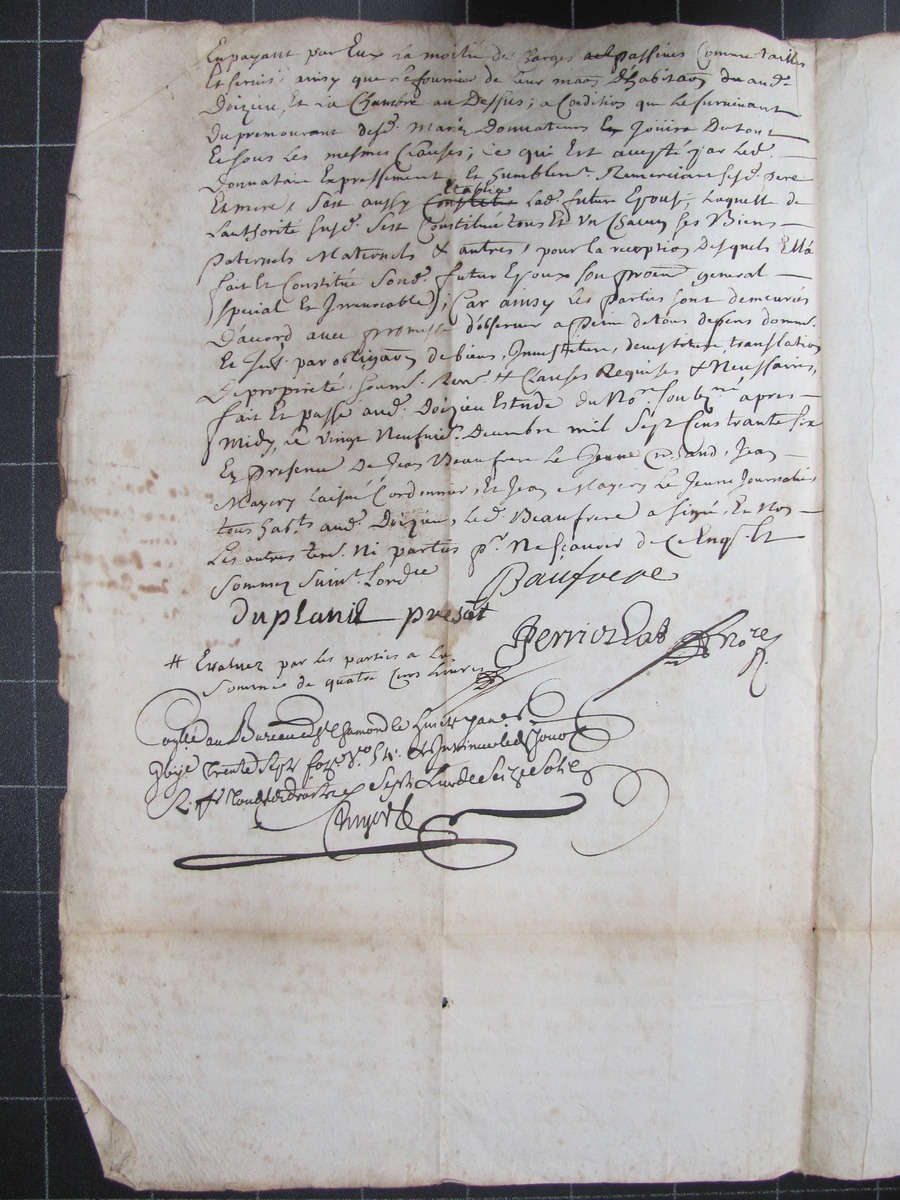 En payant par Eux La moitié des Charges passives Comme taille
Et servis, ainsy que le fournier de leur maon d'habitaon du aud.
Doizieu, Et La Chambre au Dessus; a Condition que le survivant
Du premourant desd. mariez Donnateurs En Joüira Dutout
Et sous Les mesmes Clauses; Ce qui Est accepté par led.
Donnataire Expressement, Et humblemt. Remerciant sesd. pere
Et mere, Soit aussy Establie Lad. future Epouse, Laquelle de
Lauthorité susd. Sest Constitué tous Et Un Chacun ses Biens
paternels Maternels & autres, pour la reception Desquels Ella
fait Et Constitué Sond. futur Epoux Son procur general
special Et Irrevocable, Car ainsy Les parties sont demeurées
D'accord avec promesse d'observer a peine de tous depens domm.
Et Int. par obligaon de biens, Investiture, devestiture, translation
De propriété, soum. Ren. # Clauses Requises & Necessaires,
fait Et passé aud. Doizieu Estude du Nore. soubzné. apres
midy, le Vingt Neufvie. Decembre mil Sept Cens trante six
En presence De Jean Beaufrere Le Jeune Jean
Mayery Laisné Cordonnier, Et Jean Mayery Le Jeune Journalier
tous habts. aud. Doizieu, Led. Beaufrere a signé, Et Non
Les autres tem. Ni parties pr. Ne sçavoir de Ce Enqs. Et
Sommez Suivt. Lordre
Baufrere
Duplanil present
Perriozlat nore.
# Evaluez par les parties a La
Somme de quatre Cens Livres
Con̄lé au Bureau de St. Chamond le huit janvr.
Gbije trente Sept fo. Et Insinué led. Jour
R. pour les droits Sept Livre Seize Sols